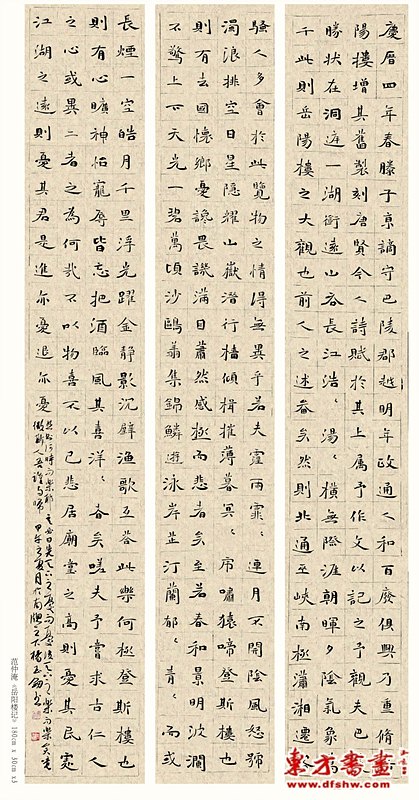 慶曆四年春滕子京謫守巴陵郡越明年政通人和百廢俱興乃重脩岳
陽樓增其舊製刻唐賢今人詩賦於其上属予作文以記之予觀夫巴陵
勝狀在洞庭一湖銜遠山吞長江浩〻湯〻橫無際涯朝暉夕陰氣象萬
千此則岳陽樓之大觀也前人之述备矣然則北通巫峽南極瀟湘遷客
騷人多會於此覽物之情得無異乎若夫霪雨霏〻連月不開陰風怒號
濁浪排空日星隱耀山嶽潛行檣傾楫摧薄暮冥〻虎嘯猿啼登斯樓也
則有去國懷鄉憂讒畏譏滿目蕭然感極而悲者矣至若春和景明波瀾
不驚上下天光一碧萬頃沙鷗翕集錦鱗遊泳岸芷汀蘭郁〻青〻而或
長煙一空皓月千里浮光躍金靜影沉璧漁歌互答此樂何極登斯樓也
則有心曠神怡寵辱皆忘把酒臨風其喜洋〻者矣嗟夫予嘗求古仁人
之心或異二者之為何哉不以物喜不以己悲居廟堂之高則憂其民處
江湖之遠則憂其君是進亦憂退亦憂
然則何時而樂耶其必曰先天下之憂而憂後天下之樂而樂矣
微斯人吾誰與歸 甲午之夏月於南
范仲淹《岳阳楼记》 180cm x 50cm x3
東方書畫
www.dfshw.com